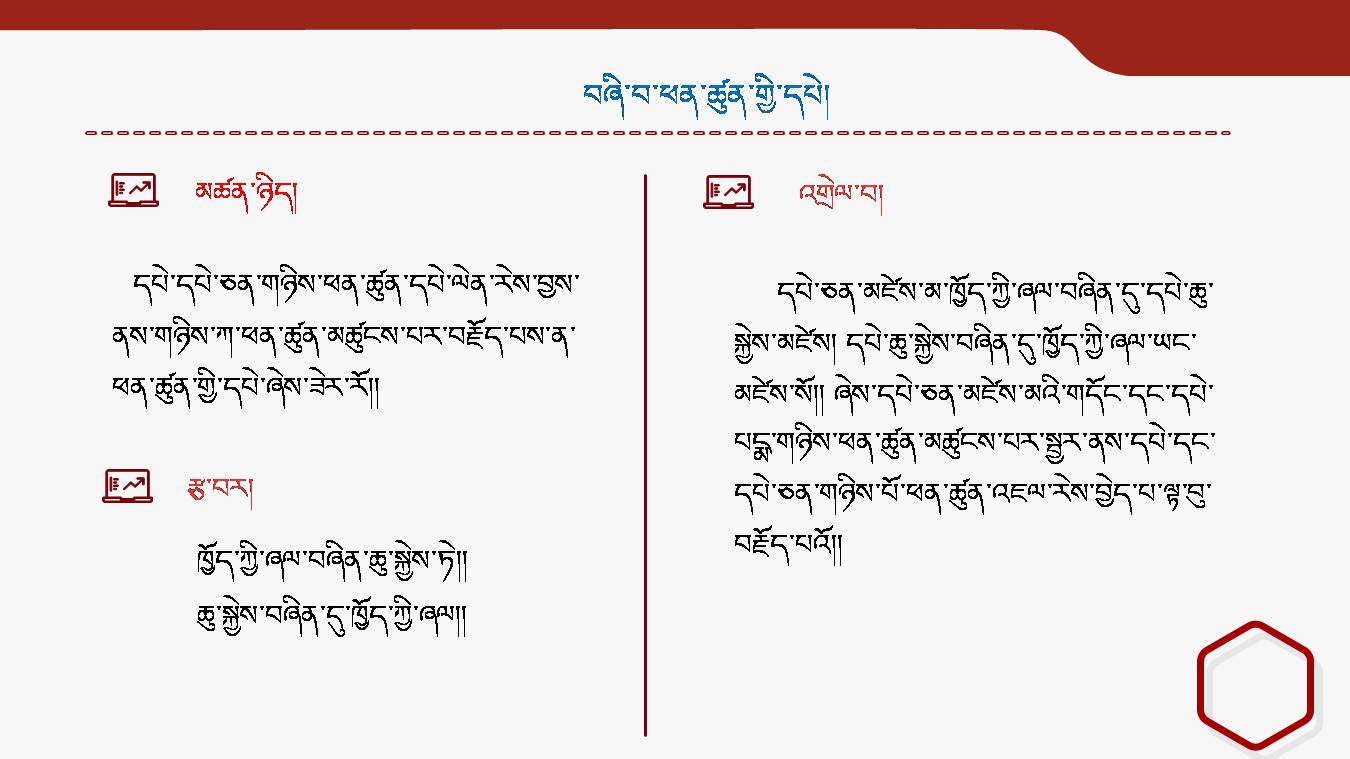 བཞི་བ་ཕན་ཚུན་གྱི་དཔེ།
མཚན་ཉིད།
དཔེ་དཔེ་ཅན་གཉིས་ཕན་ཚུན་དཔེ་ལེན་རེས་བྱས་
ནས་གཉིས་ཀ་ཕན་ཚུན་མཚུངས་པར་བརྗོད་པས་ན་
ཕན་ཚུན་གྱི་དཔེ་ཞེས་ཟེར་རོ།།
རྩ་བར།
ཁྱོད་ཀྱི་ཞལ་བཞིན་ཆུ་སྐྱེས་ཏེ།།
ཆུ་སྐྱེས་བཞིན་དུ་ཁྱོད་ཀྱི་ཞལ།།
འགྲེལ་བ།
དཔེ་ཅན་མཛེས་མ་ཁྱོད་ཀྱི་ཞལ་བཞིན་དུ་དཔེ་ཆུ་
སྐྱེས་མཛེས། དཔེ་ཆུ་སྐྱེས་བཞིན་དུ་ཁྱོད་ཀྱི་ཞལ་ཡང་
མཛེས་སོ།། ཞེས་དཔེ་ཅན་མཛེས་མའི་གདོང་དང་དཔེ་
པདྨ་གཉིས་ཕན་ཚུན་མཚུངས་པར་སྦྱར་ནས་དཔེ་དང་
དཔེ་ཅན་གཉིས་པོ་ཕན་ཚུན་འཇལ་རེས་བྱེད་པ་ལྟ་བུ་
བརྗོད་པའོ།།